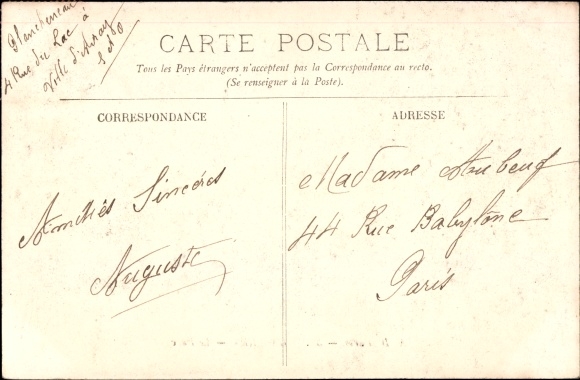 4 Rue du Lac à
Ville d'Avray
S et O
CARTE POSTALE
Tous les Pays étrangers n'acceptent pas la Correspondance au recto.
(Se renseigner à la Poste).
CORRESPONDANCE
Amitiés Sincères
Auguste
ADRESSE
Madame Aubeuf
44 Rue Babylone
Paris